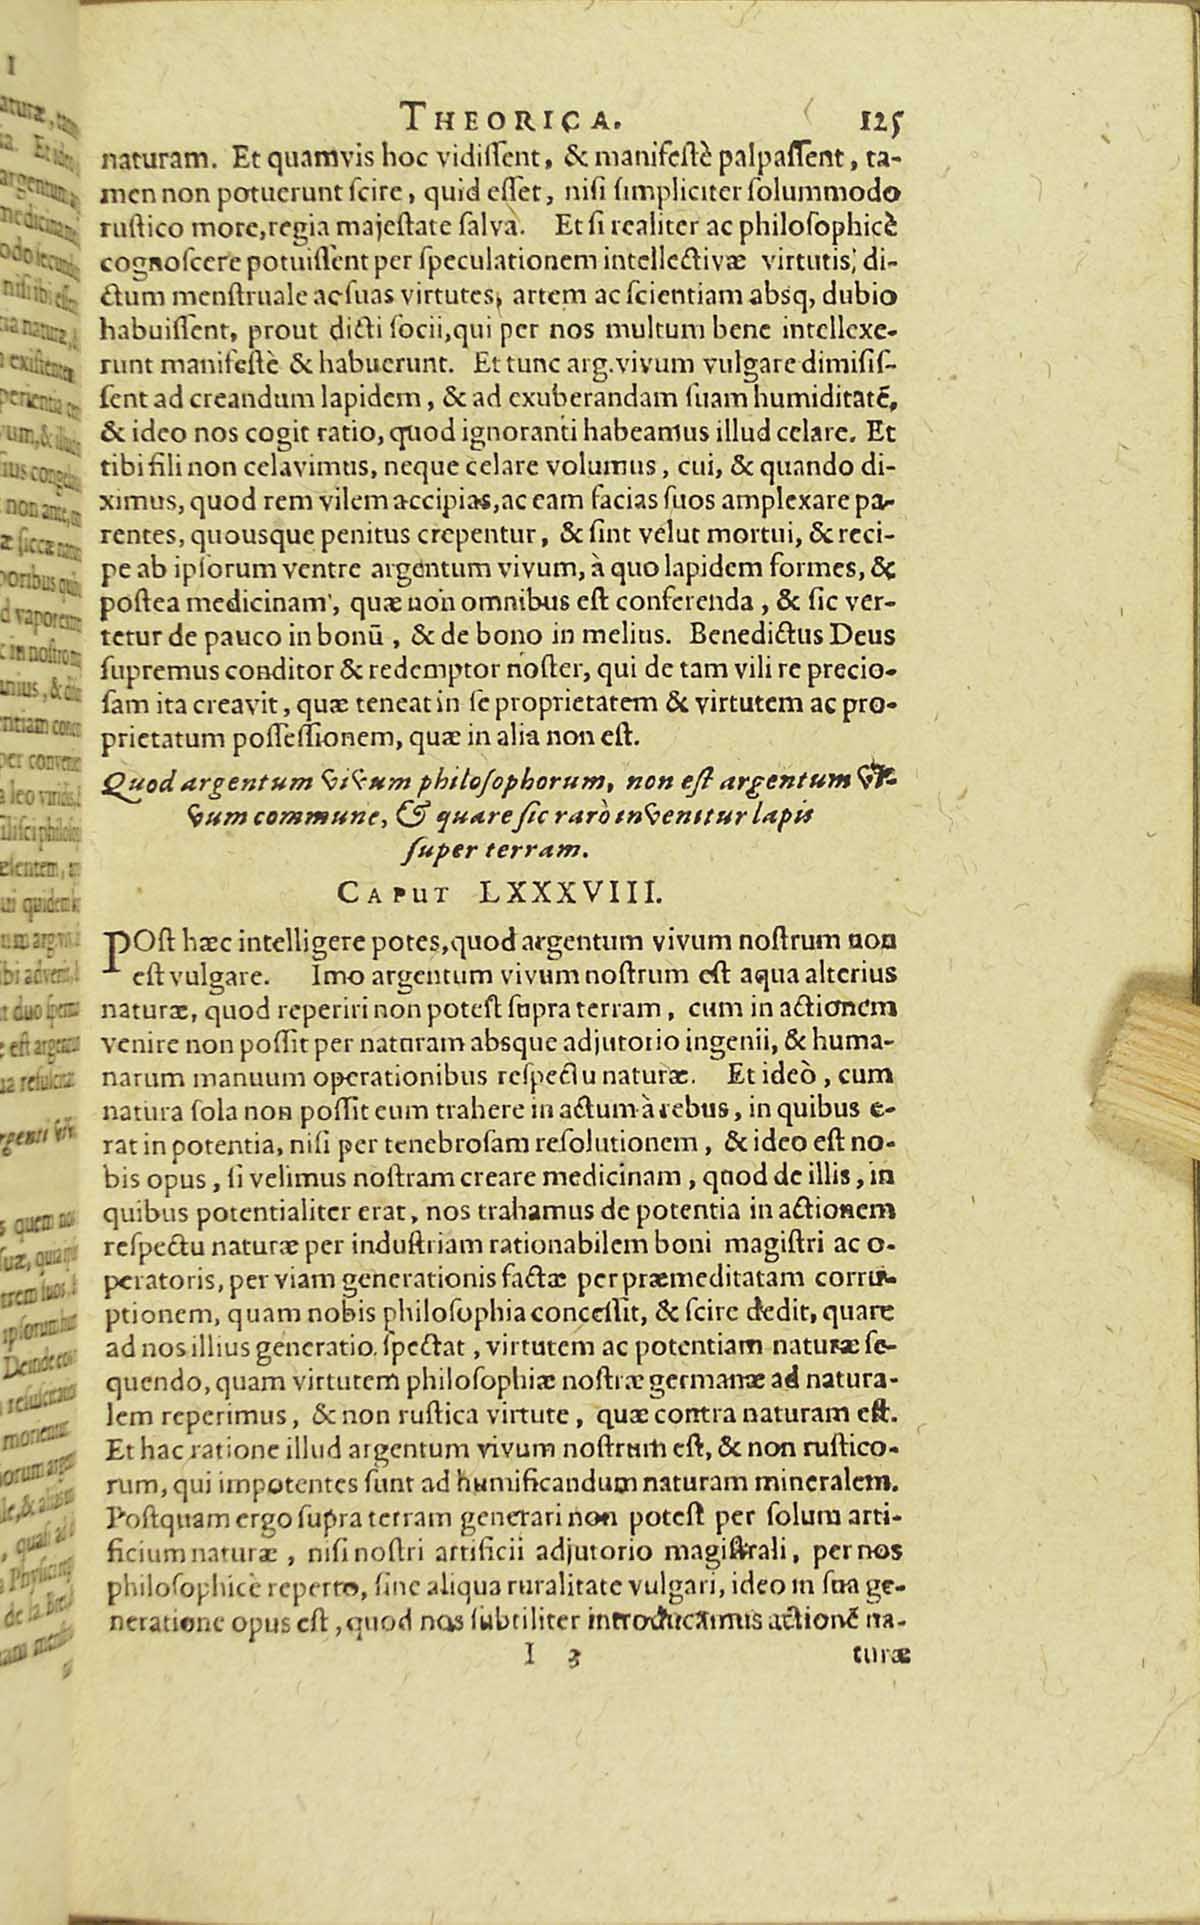 THEORICA. 125
naturam. Et quamvis hoc vidiſſent, & manifeſtè palpaſſent, ta-
men non potuerunt ſcire, quid eſſet, niſi ſimpliciter ſolummodo
ruſtico more, regia majeſtate ſalva. Et ſi realiter ac philoſophicè
cognoſcere potuiſſent per ſpeculationem intellectivæ virtutis, di-
ctum menſtruale ac ſuas virtutes, artem ac ſcientiam absq, dubio
habuiſſent, prout dicti ſocii, qui per nos multum bene intellexe-
runt manifeſtè & habuerunt. Et tunc arg. vivum vulgare dimiſiſ-
ſent ad creandum lapidem, & ad exuberandam ſuam humiditatē,
& ideo nos cogit ratio, quod ignoranti habeamus illud celare. Et
tibi fili non celavimus, neque celare volumus, cui, & quando di-
ximus, quod rem vilem accipias, ac eam facias ſuos amplexare pa-
rentes, quousque penitus crepentur, & ſint velut mortui, & reci-
pe ab ipſorum ventre argentum vivum, à quo lapidem formes, &
poſtea medicinam, quæ non omnibus eſt conferenda, & ſic ver-
tetur de pauco in bonū, & de bono in melius. Benedictus Deus
ſupremus conditor & redemptor noſter, qui de tam vili re precio-
ſam ita creavit, quæ teneat in ſe proprietatem & virtutem ac pro-
prietatum poſſeſſionem, quæ in alia non eſt.
Quod argentum vivum philoſophorum, non eſt argentum vi-
vum commune, & quare ſic rarò invenitur lapis
ſuper terram.
CAPUT LXXXVIII.
POſt hæc intelligere potes, quod argentum vivum noſtrum non
eſt vulgare. Imo argentum vivum noſtrum eſt aqua alterius
naturæ, quod reperiri non poteſt ſupra terram, cum in actionem
venire non poſſit per naturam absque adjutorio ingenii, & huma-
narum manuum operationibus reſpectu naturæ. Et ideò, cum
natura ſola non poſſit eum trahere in actum à rebus, in quibus e-
rat in potentia, niſi per tenebroſam reſolutionem, & ideo eſt no-
bis opus, ſi velimus noſtram creare medicinam, quod de illis, in
quibus potentialiter erat, nos trahamus de potentia in actionem
reſpectu naturæ per induſtriam rationabilem boni magiſtri ac o-
peratoris, per viam generationis factæ per præmeditatam corru-
ptionem, quam nobis philoſophia conceſſit, & ſcire dedit, quare
ad nos illius generatio ſpectat, virtutem ac potentiam naturæ ſe-
quendo, quam virtutem philoſophiæ noſtræ germanæ ad natura-
lem reperimus, & non ruſtica virtute, quæ contra naturam eſt.
Et hac ratione illud argentum vivum noſtrum eſt, & non ruſtico-
rum, qui impotentes ſunt ad humificandum naturam mineralem.
Poſtquam ergo ſupra terram generari non poteſt per ſolum arti-
ficium naturæ, niſi noſtri artificii adjutorio magiſtrali, per nos
philoſophicè reperto, ſine aliqua ruralitate vulgari, ideo in ſua ge-
neratione opus eſt, quod nos ſubtiliter introducamus actionē na-
I 3 turæ